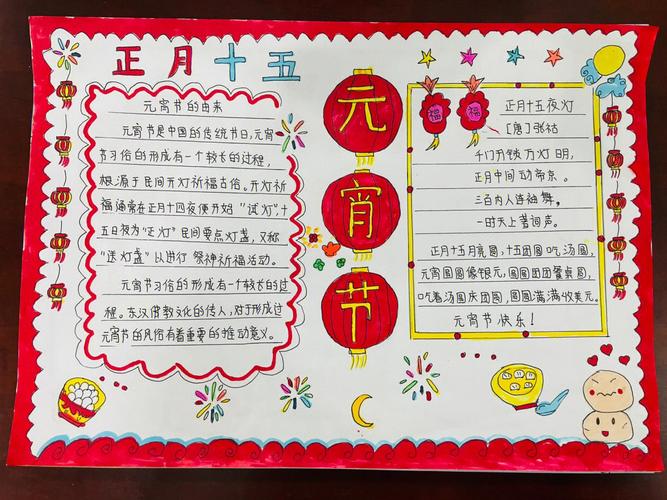 正月十五
元宵节的由来
元宵节是中国的传统节日,元宵
节习俗的形成有一个较长的过程,
根源于民间开灯祈福古俗。开灯祈
福通常在正月十四夜便开始“试灯”,十
五日夜为“正灯”民间要点灯盏,又称
“送灯盏”以进行祭神祈福活动。
元宵节习俗的形成有一个较长的过
程。东汉佛教文化的传入,对于形成过
元宵节的风俗有着重要的推动意义。
元
宵
节
福
福
正月十五夜灯
[唐]张祜
千门开锁万灯明,
正月中间动帝京。
三百内人连袖舞,
一时天上著词声。
正月十五月亮圆,十五团圆吃汤圆,
元宵圆圆像银元,圆圆团团餐桌圆,
吃着汤圆庆团圆,圆圆满满收美元。
元宵节快乐!